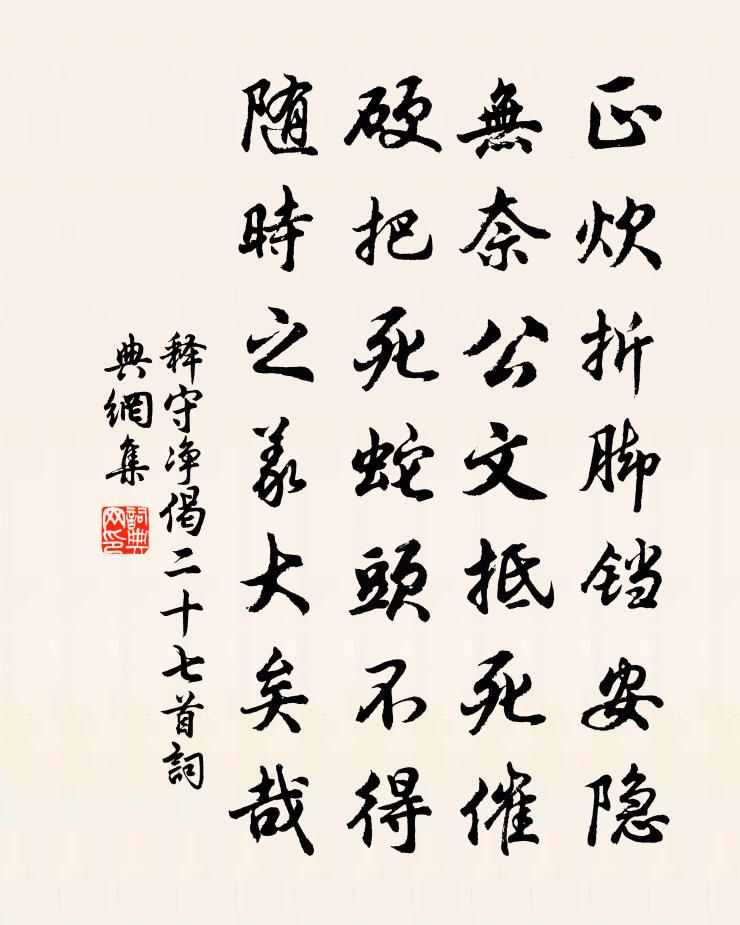 正炊折脚铛安隐
無奈公文抵死催
硬把死蛇頭不得
随時之義大矣哉
释守净偈二十七首詞
典網集
詞典网印